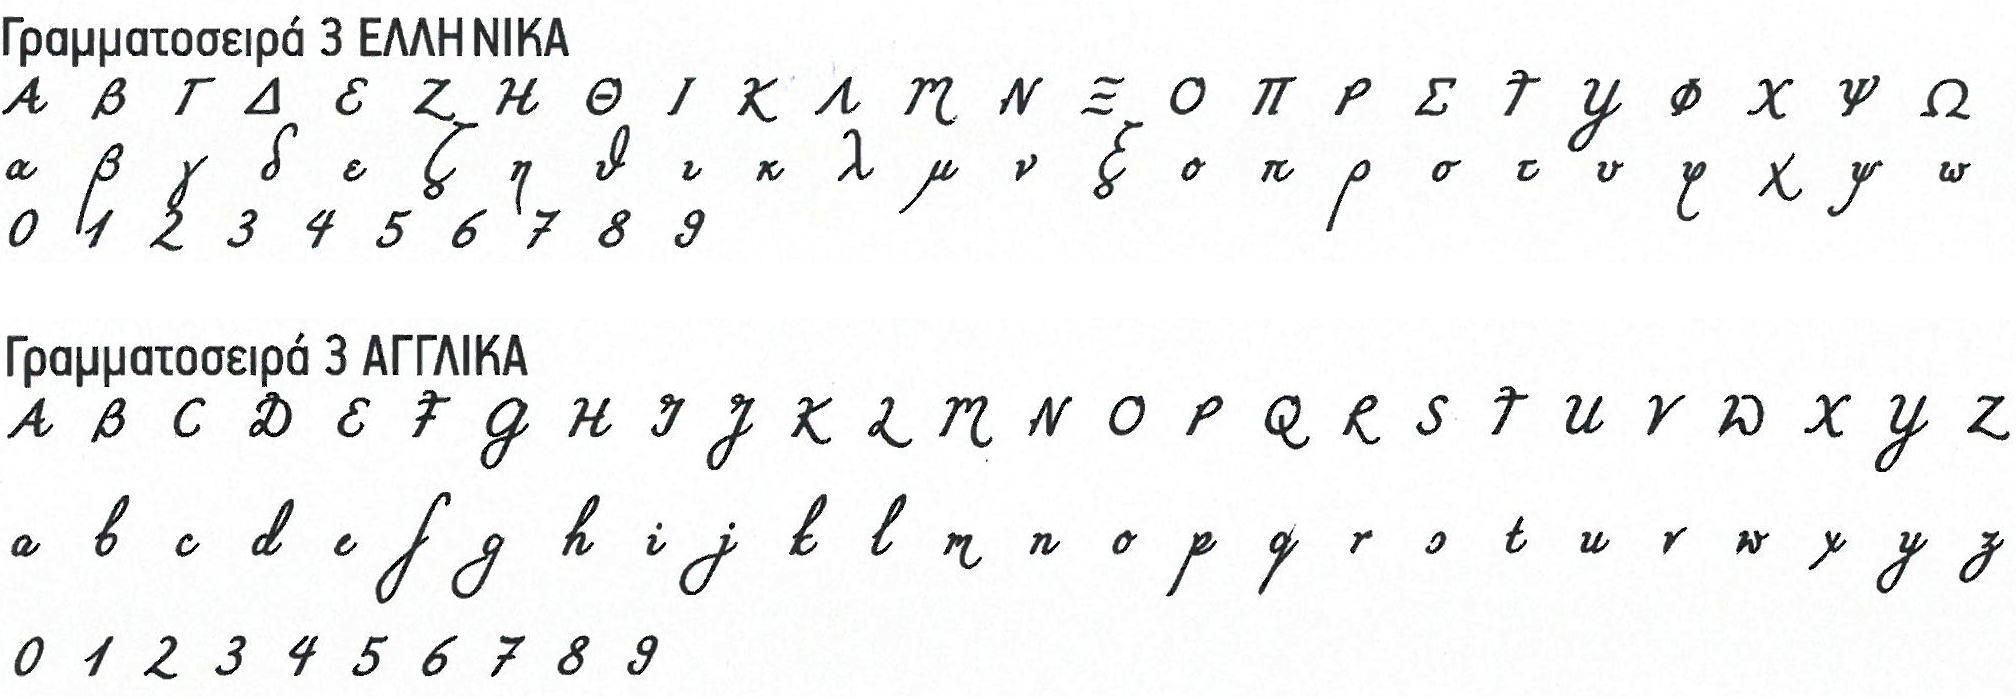 Γραμματοσειρά 3 ΕΛΛΗΝΙΚΑ
Α Β Γ Δ Ε Ζ Η Θ Ι Κ Λ Μ Ν Ξ Ο Π Ρ Σ Τ Υ Φ Χ Ψ Ω
α β γ δ ε ζ η θ ι κ λ μ ν ξ ο π ρ σ τ υ φ χ ψ ω
0 1 2 3 4 5 6 7 8 9
Γραμματοσειρά 3 ΑΓΓΛΙΚΑ
A B C D E F G H I J K L M N O P Q R S T U V W X Y Z
a b c d e f g h i j k l m n o p q r s t u v w x y z
0 1 2 3 4 5 6 7 8 9